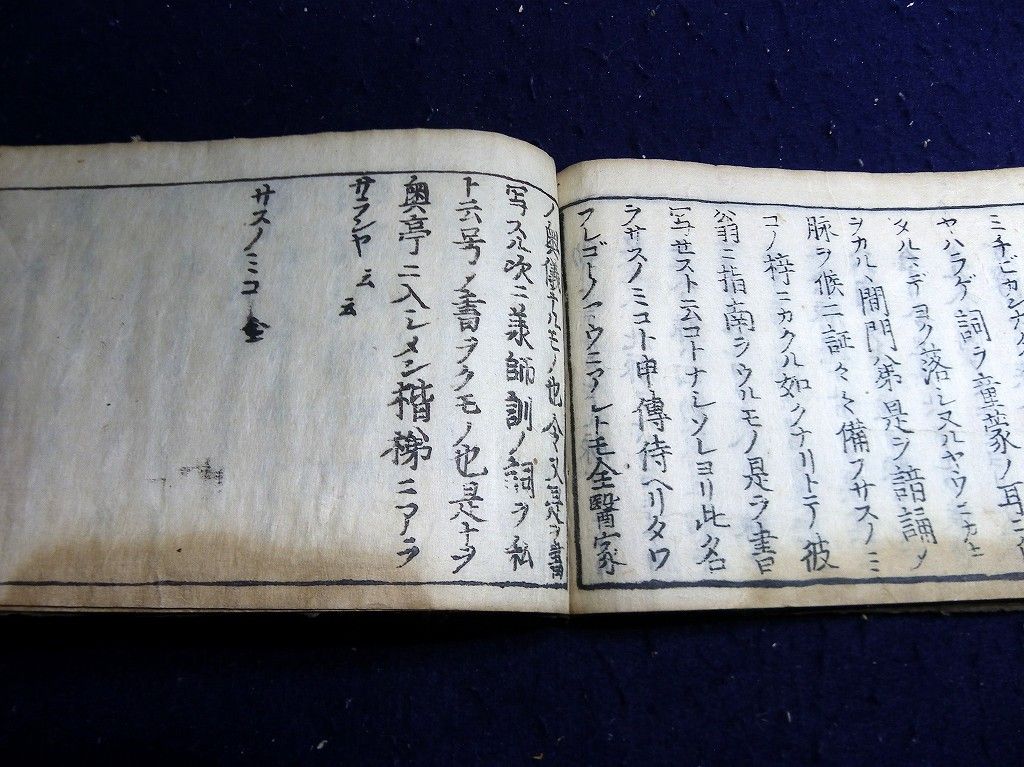 ミチビカシ
ヤハラゲ詞ヲ童蒙ノ耳ニ
タルヽデヨク落シヌルヤウニカ
ヲカル間門弟是ヲ諳誦メ
脉ヲ候ニ証々ヽ備フサスノミ
コノ梓ニカクル如クナリトテ彼
翁ニ指南シウルモノ是ヲ書
写セスト云コトナシソレヨリ此名
ヲサスノミコト申傳待ヘリタワ
フレゴトノヤウニアレトモ全醫家
ノ奥儀ナルモノ也今又是ヲ書
写スル次ニ美師訓ノ詞ヲ私
ト云号ノ書ヲクモノ也是ナヲ
奥亭ニ入シメン楷梯ニアラ
サランヤ云云
サスノミコ全